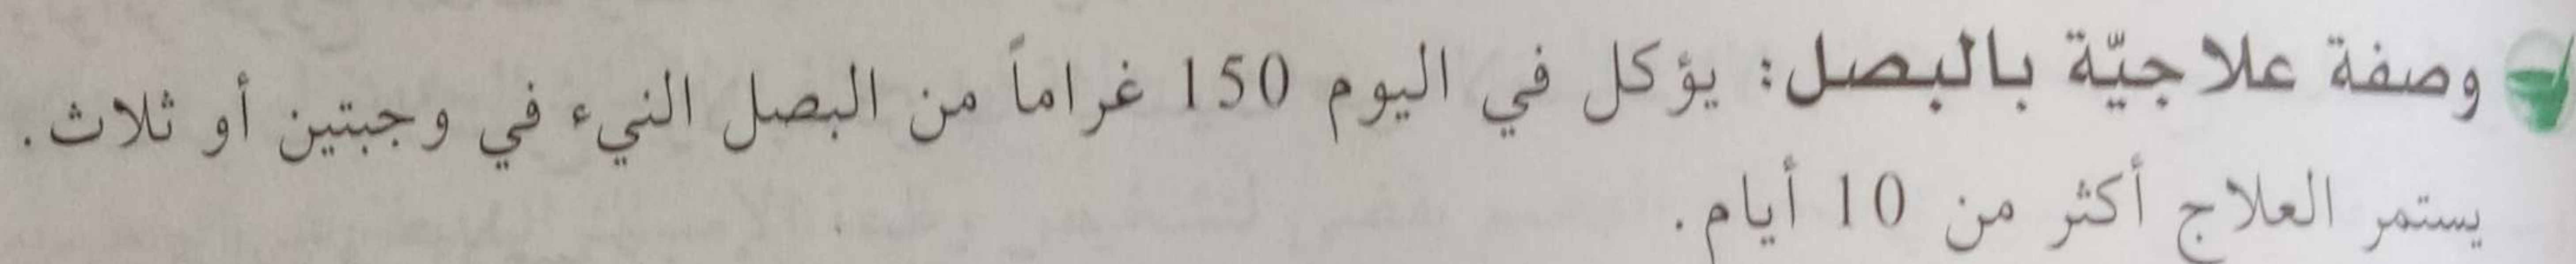 وصفة علاجيّة بالبصل: يؤكل في اليوم 150 غراماً من البصل النيء في وجبتين أو ثلاث.
يستمر العلاج أكثر من 10 أيام.